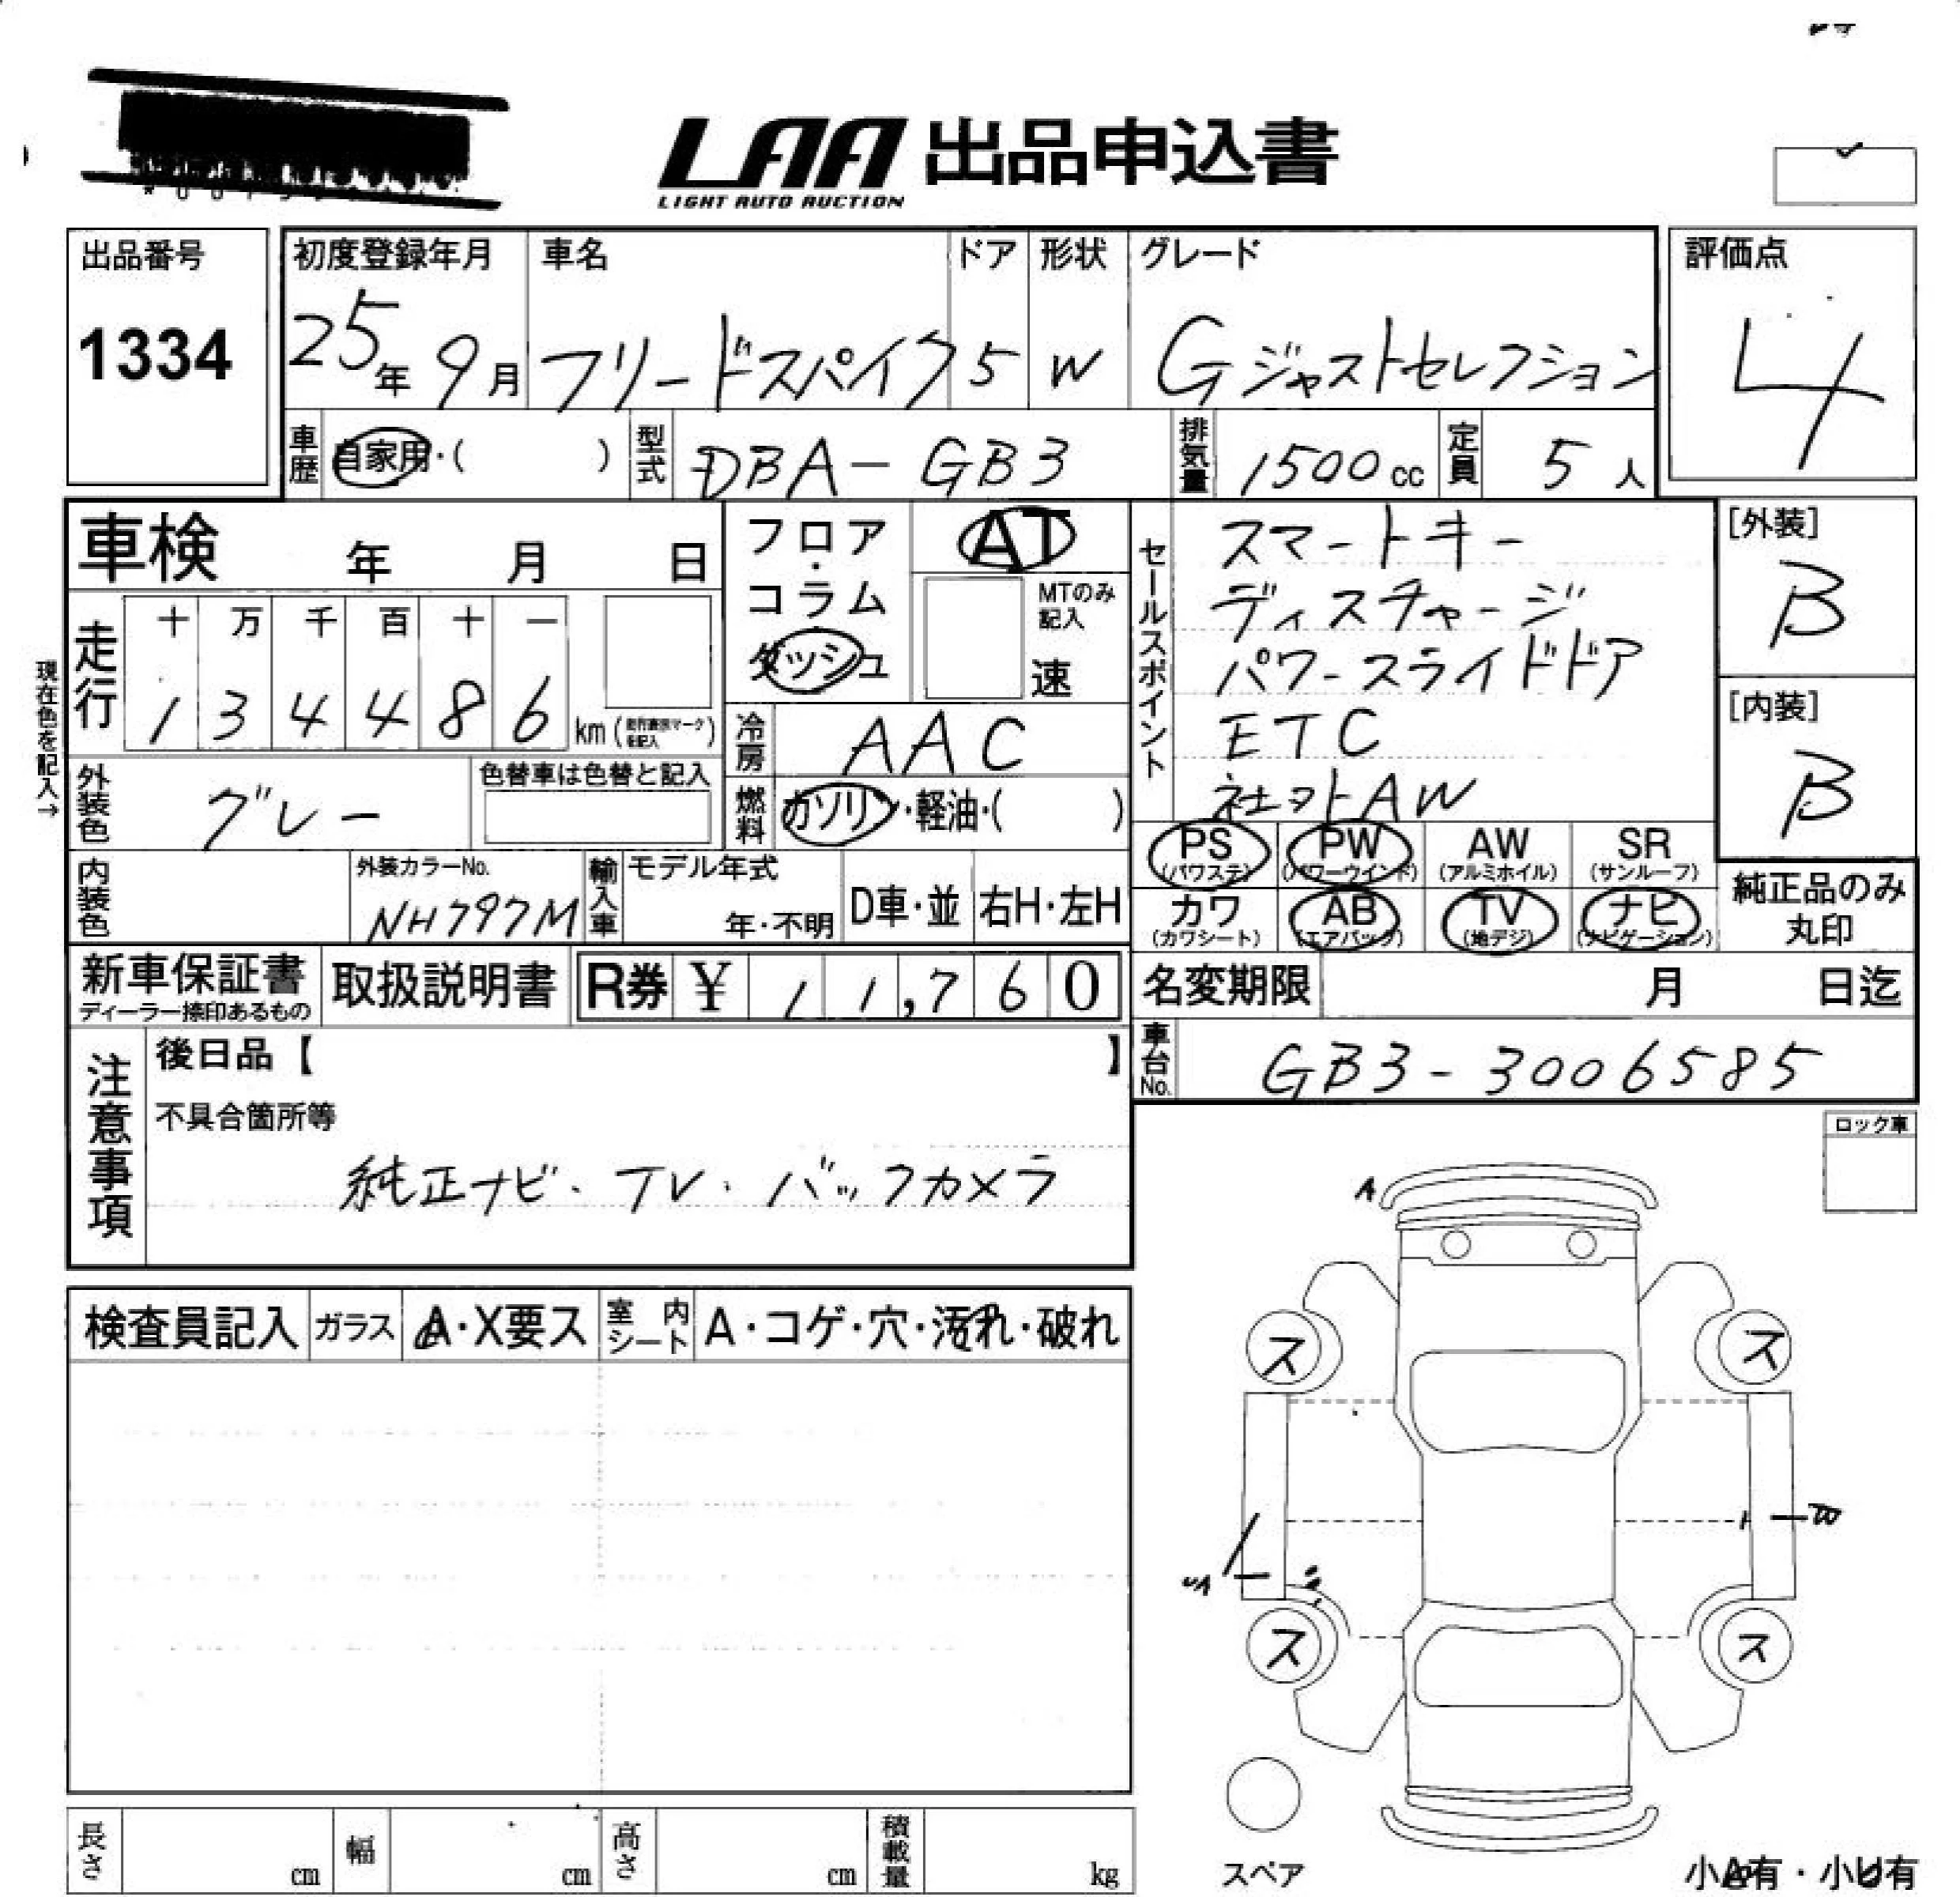 LAA 出品申込書
LIGHT AUTO AUCTION
出品番号
1334
初度登録年月
25年 9月
車名
フリードスパイク
ドア
5
形状
W
グレード
Gジャストセレクション
評価点
4
車歴 自家用・( )
型式 DBA-GB3
排気量 1500cc
定員 5人
車検 年 月 日
フロア・コラム・ダッシュ
AT
MTのみ記入
速
セールスポイント
スマートキー
ディスチャージ
パワースライドドア
ETC
社外AW
[外装]
B
[内装]
B
現在色を記入→
走行
十 万 千 百 十 一
1 3 4 4 8 6 km
冷房 AAC
外装色 グレー
色替車は色替と記入
燃料 ガソリン・軽油・( )
PS (パワステ)
PW (パワーウインド)
AW (アルミホイル)
SR (サンルーフ)
カワ (カワシート)
AB (エアバック)
TV (地デジ)
ナビ (ナビゲーション)
純正品のみ丸印
内装色
外装カラーNo.
NH797M
輸入車
モデル年式
年・不明
D車・並
右H・左H
新車保証書
ディーラー捺印あるもの
取扱説明書
R券 ¥ 11,760
名変期限 月 日迄
車台No. GB3-3006585
注意事項
後日品【 】
不具合箇所等
純正ナビ・TV・バックカメラ
ロック車
検査員記入
ガラス A・X要ス
室内シート A・コゲ・穴・汚れ・破れ
A
ス ス
ス ス
スペア
小A有・小U有
長さ cm
幅 cm
高さ cm
積載量 kg